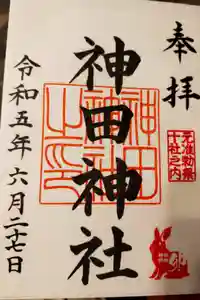 奉拝
元准勅祭
十社之内
卯
神田神社
神田
神社
之印
令和五年六月二十七日